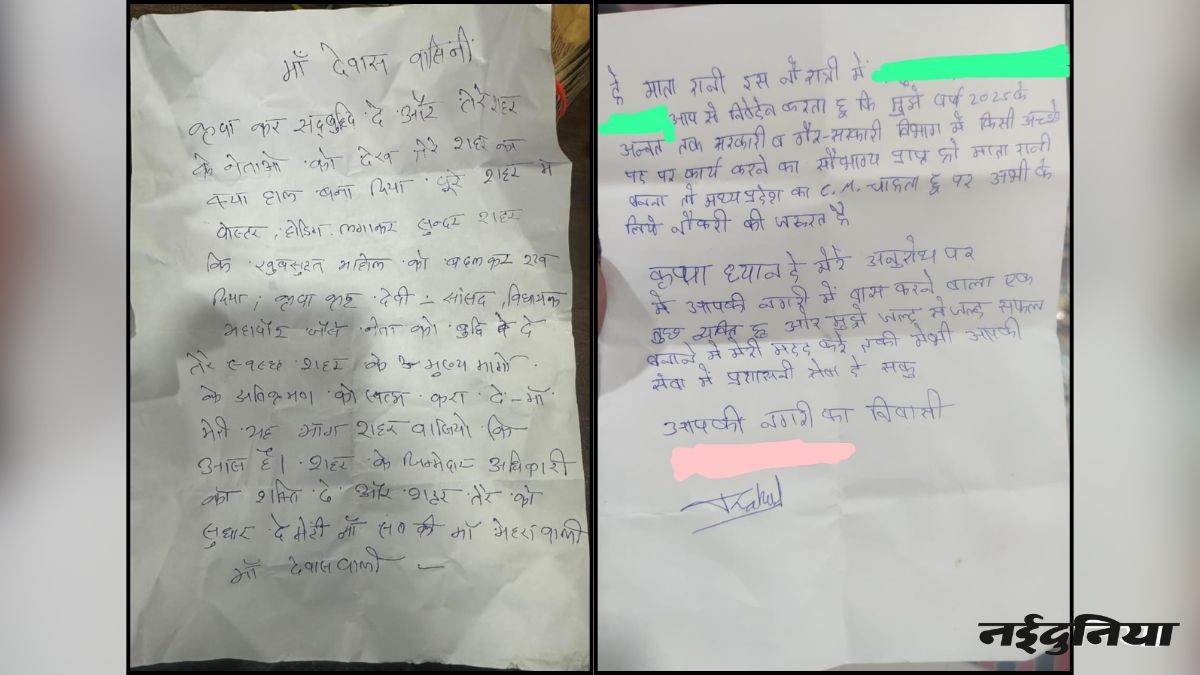 माँ देवास वासिनी
कृपा कर सदबुद्धि दे और तेरे शहर
के नेताओ को देख तेरे शहर का
क्या हाल बना दिया पुरे शहर मे
पोस्टर, होर्डिग लगाकर सुन्दर शहर
कि खुबसुरत माहोल को बदलकर रख
दिया, कृपा कर देवी - सांसद, विधायक
महापौर जैसे नेता को बुद्धि दे दे
तेरे स्वच्छ शहर के मुख्य मार्गो
के अतिक्रमण को खत्म करा दे - माँ
मेरी यह मांग शहर वासियो कि
आस है। शहर के जिम्मेदार अधिकारी
को शक्ति दे और शहर तेरे को
सुधार दे मेरी माँ सब की माँ मेहरावाली
माँ देवासवाली —
हे माता रानी इस नौ रात्री में
आप से निवेदन करता हु कि मुझे वर्ष 2025 के
अन्नत तक सरकारी व गैर-सरकारी विभाग में किसी अच्छे
पद पर कार्य करने का सौभाग्य प्राप्त हो माता रानी
बनना तो मध्यप्रदेश का C.M. चाहता हु पर अभी के
लिये नौकरी की जरूरत है
कृप्या ध्यान दे मेरे अनुरोध पर
मे आपकी नगरी में वास करने वाला एक
तुछ व्यक्ति हु और मुझे जल्द से जल्द सफल
बनाने मे मेरी मदद करे, तकी मेभी आपकी
सेवा मे प्रशासनी सेवा दे सकु
आपकी नगरी का निवासी
नईदुनिया